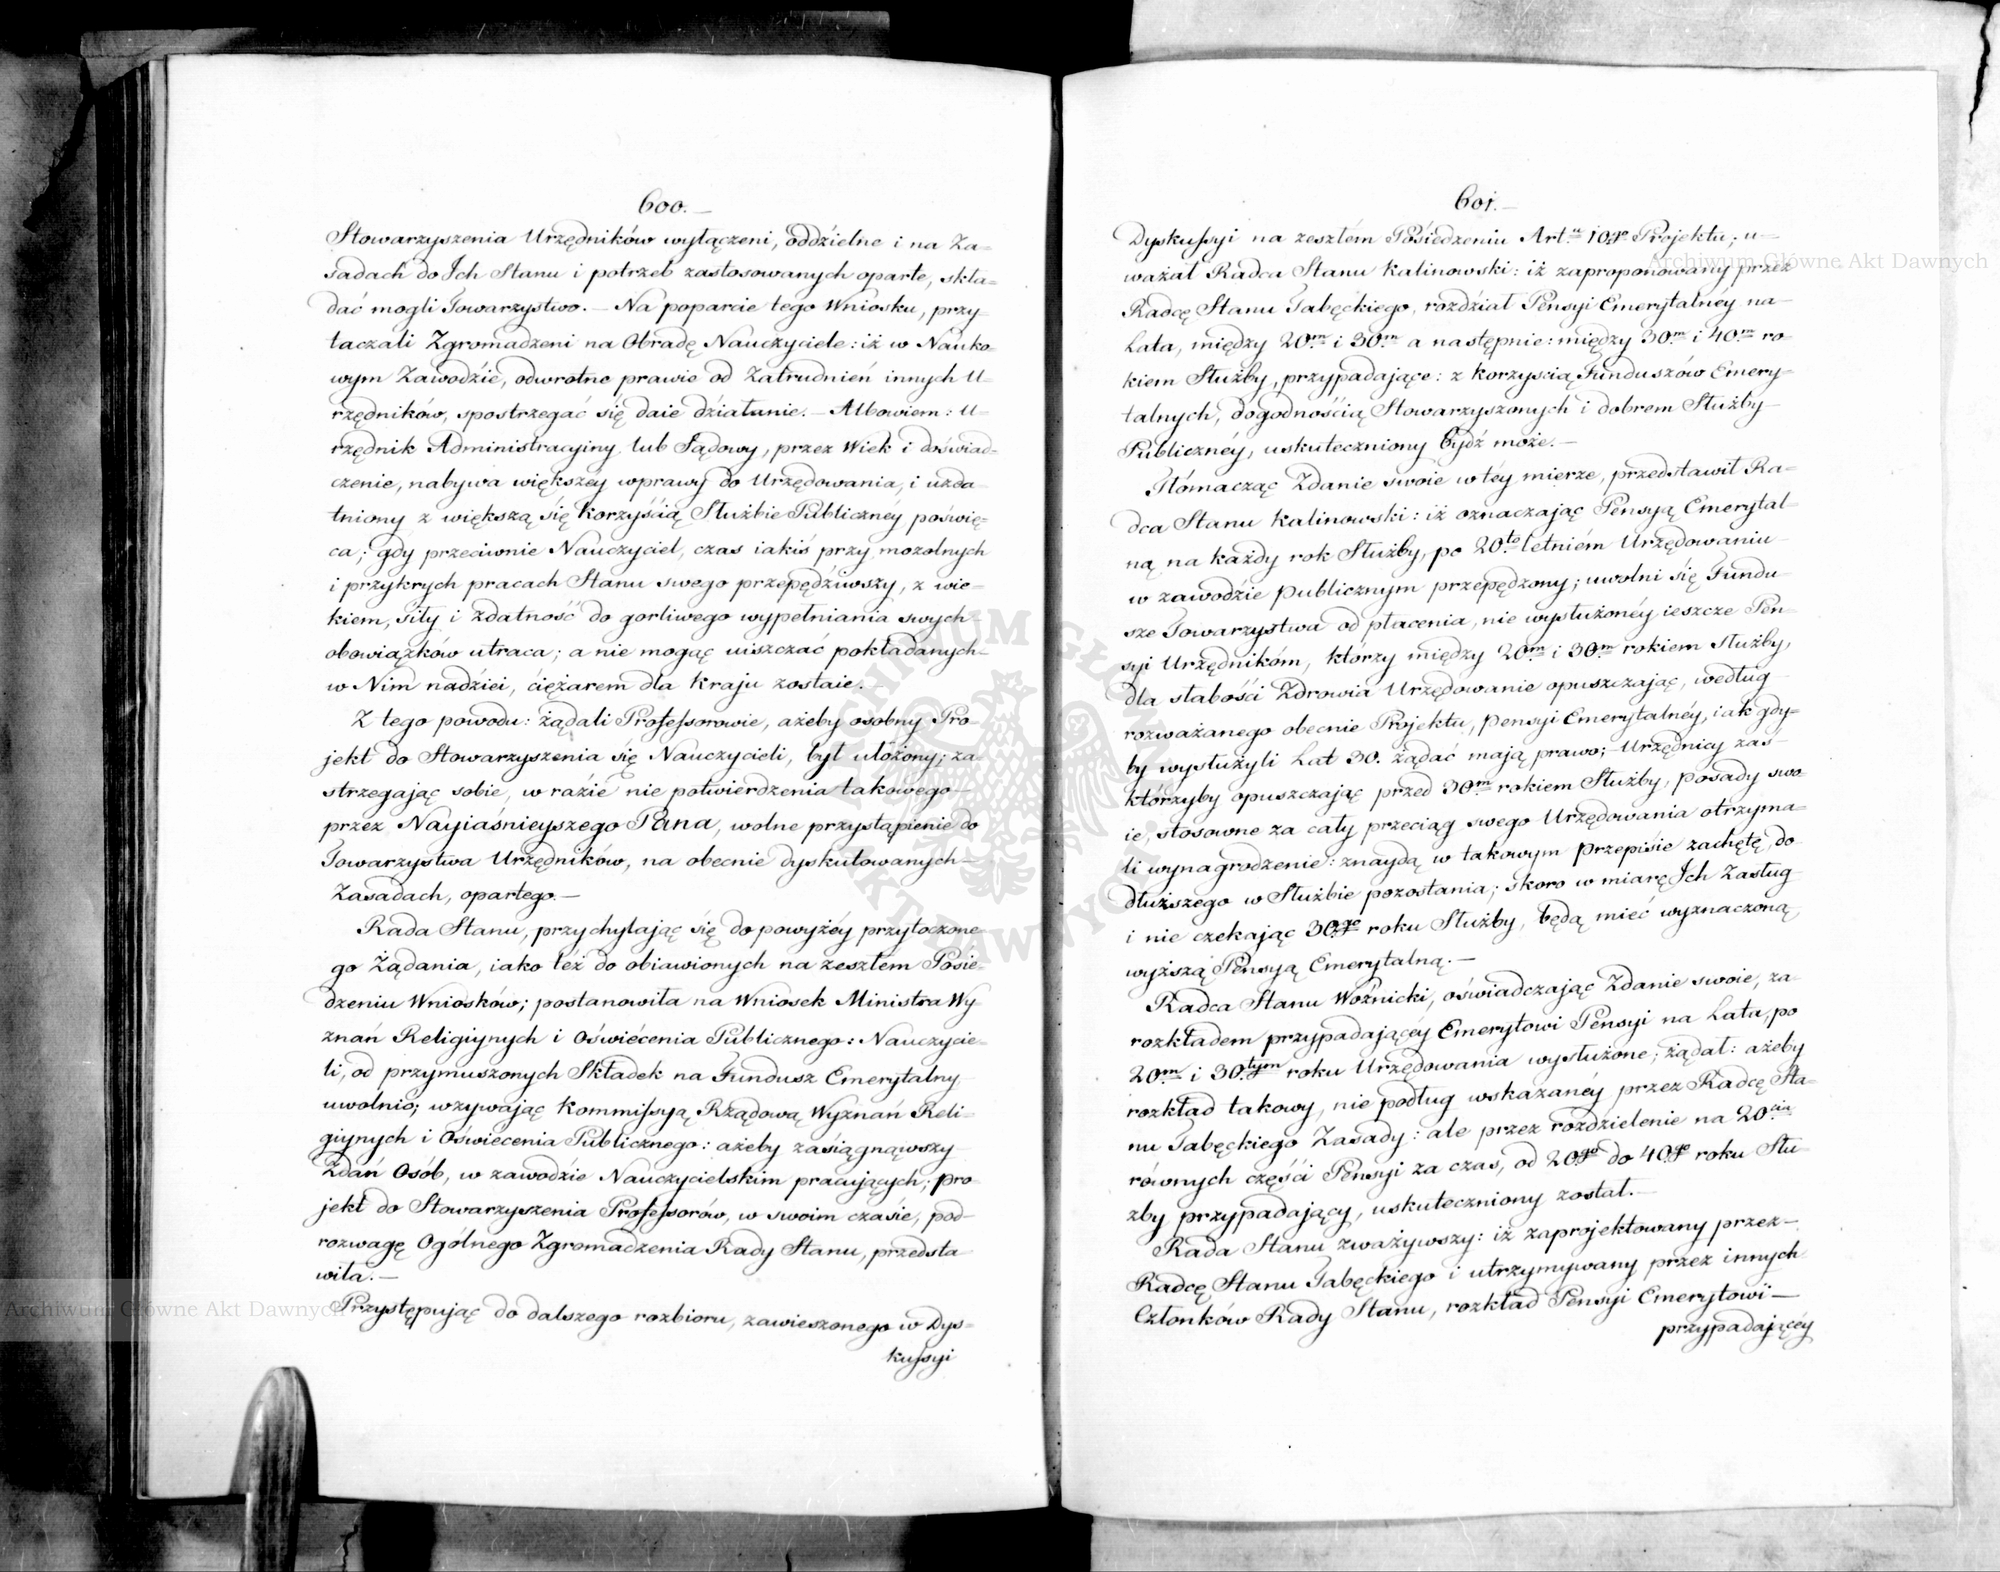 600.—
Stowarzyszenia Urzędników wyłączeni, oddzielne i na Za=
sadach do Ich Stanu i potrzeb zastosowanych oparte, skła=
dać mogli Towarzystwo.— Na poparcie tego Wniosku, przy=
taczali Zgromadzeni na Obradę Nauczyciele: iż w Nauko=
wym Zawodzie, odwrotne prawie od Zatrudnień innych U=
rzędników, spostrzegać się daie działanie.— Albowiem: U=
rzędnik Administracyiny lub Sądowy, przez Wiek i doświad=
czenie, nabywa większéy wprawy do Urzędowania, i uzda=
tniony z większą się korzyścią Służbie Publiczney poświę=
ca; gdy przeciwnie Nauczyciel, czas iakiś przy mozolnych
i przykrych pracach Stanu swego przepędziwszy, z wie=
kiem, siły i zdatność do gorliwego wypełniania swych
obowiązków utraca; a nie mogąc uiszczać pokładanych
w Nim nadziei, ciężarem dla Kraju zostaie.—
Z tego powodu: żądali Professorowie, ażeby osobny Pro=
jekt do Stowarzyszenia się Nauczycieli, był ułożony; za=
strzegając sobie, w razie nie potwierdzenia takowego
przez Nayiaśnieyszego Pana, wolne przystąpienie do
Towarzystwa Urzędników, na obecnie dyskutowanych
Zasadach, opartego.—
Rada Stanu, przychylając się do powyżéy przytoczone=
go Żądania, iako też do obiawionych na zeszłem Posie=
dzeniu Wniosków; postanowiła na Wniosek Ministra Wy=
znań Religiynych i Oświécenia Publicznego: Nauczycie=
li, od przymuszonych Składek na Fundusz Emerytalny
uwolnić; wzywając Kommissyą Rządową Wyznań Reli=
giynych i Oświecenia Publicznego: ażeby zasiągnąwszy
Zdań Osób, w zawodzie Nauczycielskim pracujących; pro=
jekt do Stowarzyszenia Professorów, w swoim czasie, pod
rozwagę Ogólnego Zgromadzenia Rady Stanu, przedsta=
wiła.—
Przystępując do dalszego rozbioru, zawieszonego w Dys=
kussyi
601.—
Dyskussyi na zeszłém Posiedzeniu Art.u 10go Projektu; u=
ważał Radca Stanu Kalinowski: iż zaproponowany przez
Radcę Stanu Tabęckiego, rozdział Pensyi Emerytalnéy na
Lata, między 20m i 30m a następnie: między 30m i 40m ro=
kiem Służby, przypadające: z korzyścią Funduszów Emery=
talnych, dogodnością Stowarzyszonych i dobrem Służby
Publicznéy, uskuteczniony bydź może.—
Tłómacząc Zdanie swoie w téy mierze, przedstawił Ra=
dca Stanu Kalinowski: iż oznaczając Pensyą Emerytal=
ną na każdy rok Służby, po 20to letniém Urzędowaniu
w zawodzie publicznym przepędzony; uwolni się Fundu=
sze Towarzystwa od płacenia, nie wysłużonéy ieszcze Pen=
syi Urzędnikóm, którzy między 20m i 30m rokiem służby,
dla słabości Zdrowia Urzędowanie opuszczając, według
rozważanego obecnie Projektu, pensyi Emerytalnéy, iak gdy=
by wysłużyli Lat 30. żądać mają prawo;— Urzędnicy zaś
którzyby opuszczając przed 30m rokiem Służby, posady swo=
ie, stosowne za cały przeciąg swego Urzędowania otrzyma=
li wynagrodzenie: znaydą w takowym przepisie zachętę, do
dłuższego w Służbie pozostania; skoro w miarę Ich Zasług
i nie czekając 30go roku Służby, będą mieć wyznaczoną,
wyższą Pensyą Emerytalną.—
Radca Stanu Woźnicki, oświadczając Zdanie swoie, za
rozkładem przypadającéy Emerytowi Pensyi na Lata, po
20m i 30tym roku Urzędowania wysłużone; żądał: ażeby
rozkład takowy, nie podług wskazanéy przez Radcę Sta=
nu Tabęckiego Zasady: ale przez rozdzielenie na 20cia
równych części Pensyi za czas, od 20go do 40go roku Słu=
żby przypadający, uskuteczniony został.—
Rada Stanu zważywszy: iż zaprojektowany przez
Radcę Stanu Tabęckiego i utrzymywany przez innych
Członków Rady Stanu, rozkład Pensyi Emerytowi—
przypadającéy
Archiwum Główne Akt Dawnych
Archiwum Główne Akt Dawnych
ARCHIWUM GŁÓWNE AKT DAWNYCH